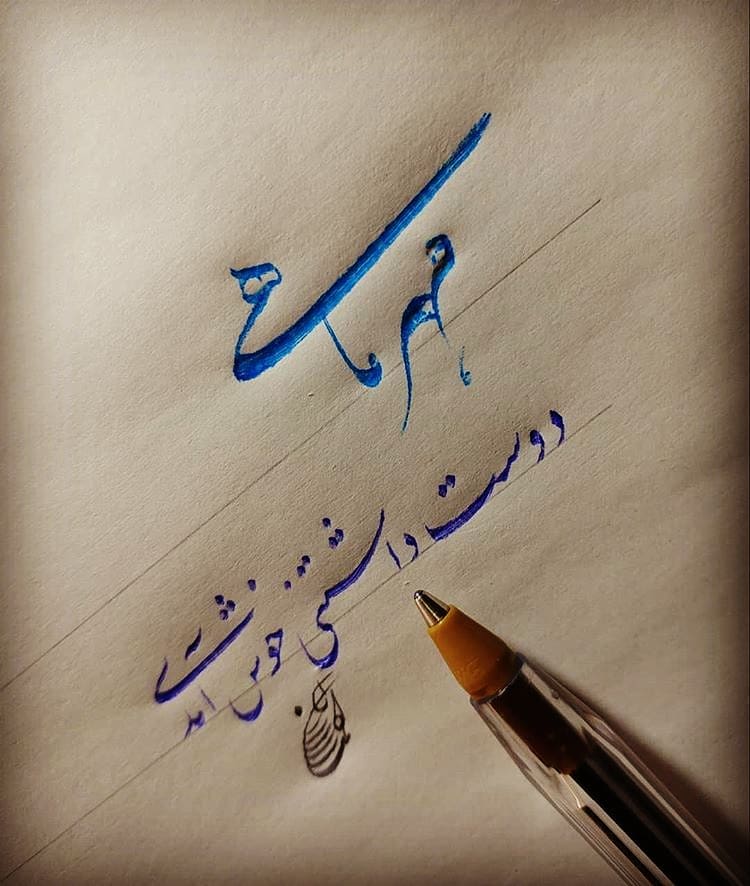 مهر ماه
دوست داشتنی خوش آمدی